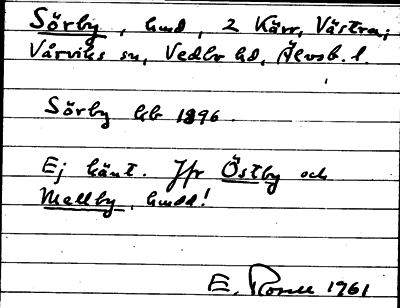 Sörby, hmd, 2 Kärr, Västra;
Vårviks sn, Vedbo hd, Älvsb. l.
Sörby hb 1896.
Ej känt. Jfr Östby och
Mellby, hmdd!
E. Rosell 1961